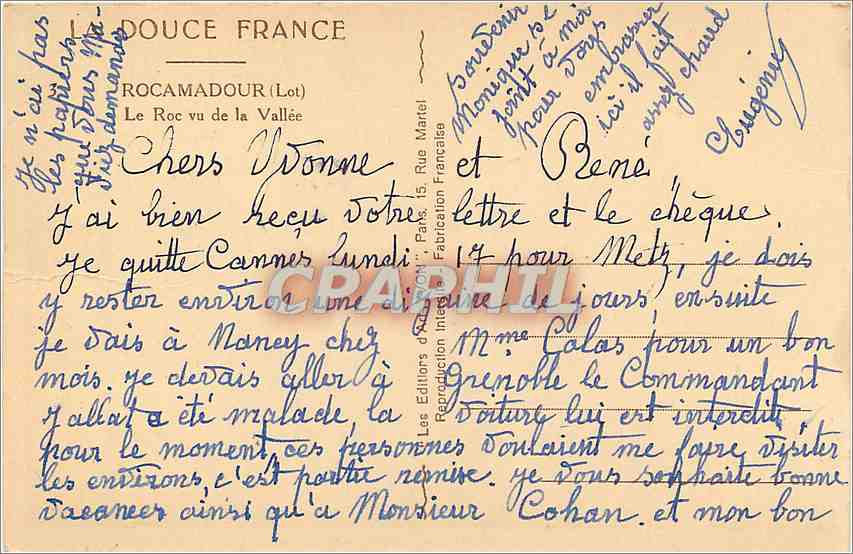 LA DOUCE FRANCE
ROCAMADOUR (Lot)
Le Roc vu de la Vallée
Chers Yvonne et René,
J'ai bien reçu votre lettre et le chèque.
je quitte Cannes lundi 17 pour Metz, je dois
y rester environ une dizaine de jours, ensuite
je vais à Nancy chez Mme Calas pour un bon
mois. je devais aller à Grenoble le Commandant
Jallat a été malade, la voiture lui est interdite
pour le moment, ces personnes voulaient me faire visiter
les environs, c'est partie remise. je vous souhaite bonne
vacances ainsi qu'a Monsieur Cohan. et mon bon
souvenir
Monique se
joint à moi
pour vous
embrasser
ici il fait
assez chaud
Eugénie
Je n'ai pas
les papiers
que vous m'a-
viez demandés
Les Editions d'Art "YVON", Paris, 15, Rue Martel
Reproduction Interdite Fabrication Française
CPAPHIL